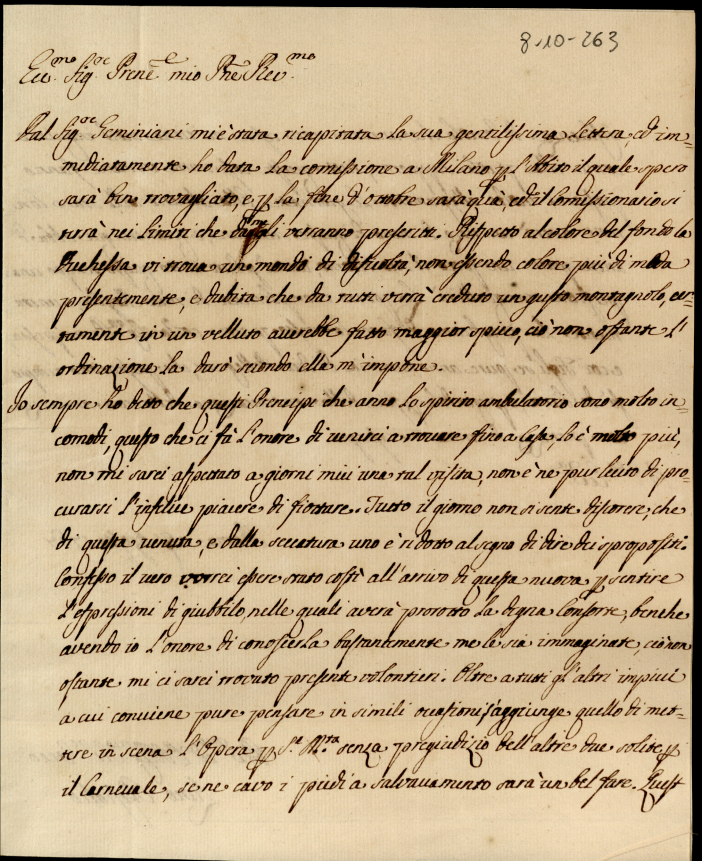 8-10-263
Ecc.mo Sig.or Prene mio Pne Rev.mo
Dal Sig.or Geminiani mi è stata ricapitata la sua gentilissima lettera, ed im=
mediatamente ho data la comissione a Milano p l'Abito il quale spero
sarà ben travagliato, e p la fine d'ottobre sarà quà, ed il Comissionario si
terrà nei limiti che verranno prescritti. Rispetto al colore del fondo la
Duchessa vi trova un mondo di dificoltà, non essendo colore più di moda
presentemente, e dubita che da tutti verrà creduto un gusto montagnolo, cer=
tamente in un velluto averebbe fatto maggior spicco, ciò non ostante l'
ordinazione la darò secondo ella m'impone.
Io sempre ho detto che questi Prencipi che anno lo spirito ambulatorio sono molto in=
comodi, questo che ci fà l'onore di venirci a trovare fino a Casa, lo è molto più,
non mi sarei aspettato a giorni miei una tal visita, non è ne pur lecito di pro=
curarsi l'infelice piacere di fiottare. Tutto il giorno non si sente discorere, che
di questa venuta, e dalla seccatura uno è ridotto al segno di dire dei spropositi.
Confesso il vero vorrei essere stato costì all'arrivo di questa nuova p sentire
l'espressioni di giubilo, nelle quali averà prorotto la degna Consorte, benche
avendo io l'onore di conoscerla bastantemente me le sia immaginate, ciò non
ostante mi ci sarei trovato presente volontieri. Oltre a tutti gl'altri impicci
a cui conviene pure pensare in simili ocasioni s'aggiunge quello di met=
tere in scena l'Opera p S.e M.tà senza pregiudizio dell'altre due solite p
il Carnevale, se ne cavo i piedi a salvamento sarà un bel fare. Quest